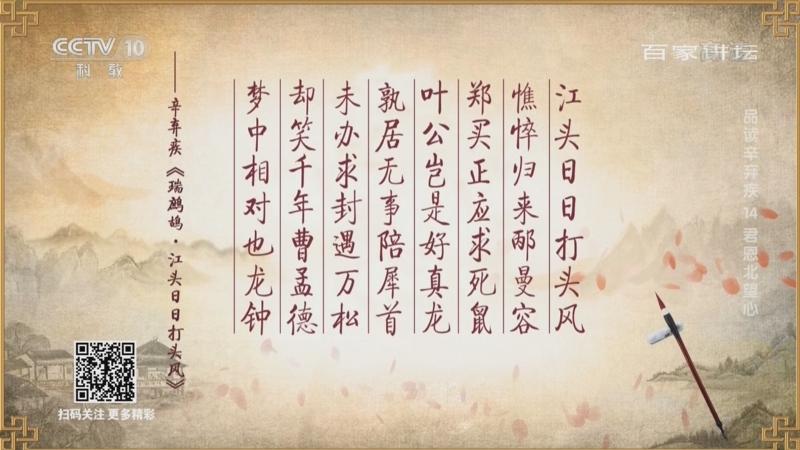 CCTV 10
科教
百家讲坛
品读辛弃疾 14 君恩北望心
江头日日打头风
憔悴归来邴曼容
郑买正应求死鼠
叶公岂是好真龙
孰居无事陪犀首
未办求封遇万松
却笑千年曹孟德
梦中相对也龙钟
——辛弃疾《瑞鹧鸪·江头日日打头风》
扫码关注 更多精彩